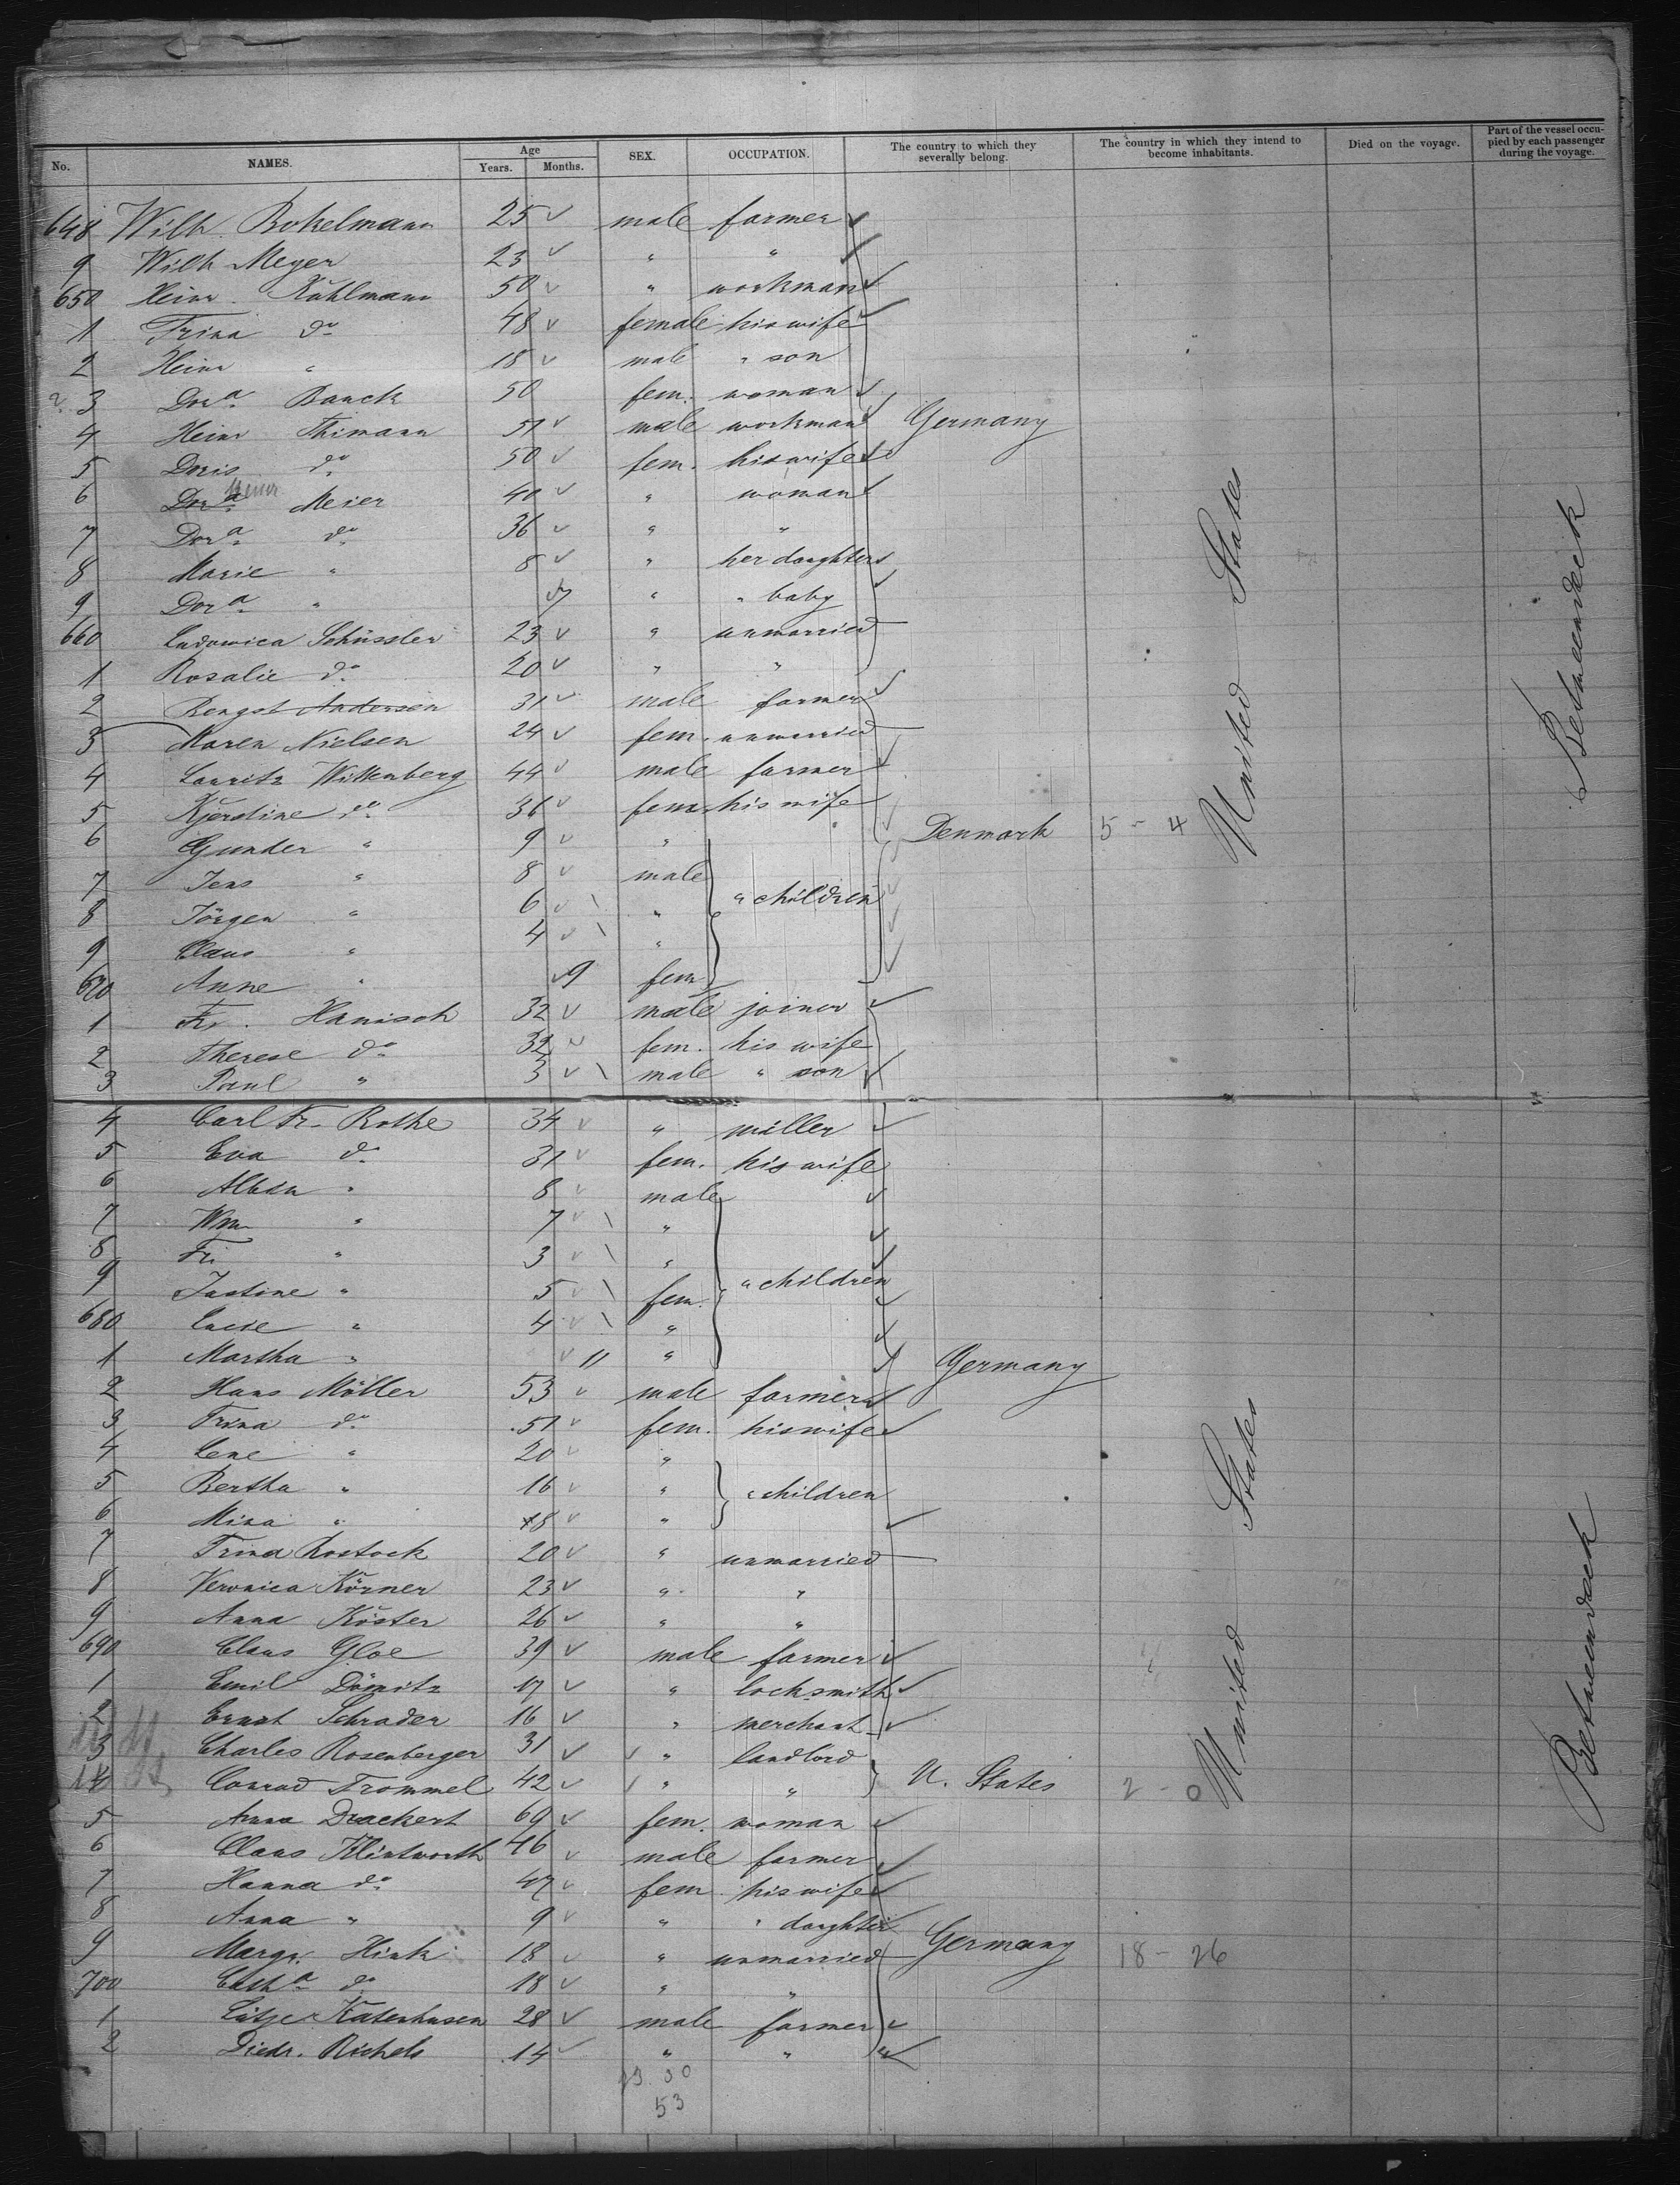 No. NAMES. Age Years. Months. SEX. OCCUPATION. The country to which they severally belong. The country in which they intend to become inhabitants. Died on the voyage. Part of the vessel occupied by each passenger during the voyage.
648 Wilh. Bokelmann 25 male farmer
9 Wilh Meyer 23 " "
650 Heinr. Kuhlmann 50 " workman
1 Trina do 48 female his wife
2 Heinr " 18 male " son
3 Dora Banck 50 fem. woman
4 Heinr Thimann 51 male workman Germany
5 Doris do 50 fem. his wife
6 Dora Heinr Meier 40 " woman
7 Dora do 36 " "
8 Marie " 8 " her daughters
9 Dora " " " baby
660 Ludowica Schüssler 23 " unmarried
1 Rosalie do 20 " "
2 Bengst Andersen 31 male farmer
3 Maren Nielsen 24 fem. unmarried
4 Lauritz Wittenberg 44 male farmer
5 Kjerstine do 36 fem. his wife
6 Gunder " 9 " Denmark 5 - 4 United States Betweendeck
7 Jens " 8 male
8 Jörgen " 6 " " children
9 Claus " 4 "
670 Anne " 9 fem
1 Fr. Hanisch 32 male joiner
2 Therese do 32 fem. his wife
3 Paul " 3 male " son
4 Carl Fr. Rothe 34 " miller
5 Eva do 31 fem. his wife
6 Albin " 8 male
7 Wm " 7 "
8 Fr. " 3 "
9 Justine " 5 fem. " children
680 Luise " 4 "
1 Martha " 11 " Germany
2 Hans Möller 53 male farmer
3 Trina do 51 fem. his wife
4 Lene " 20 "
5 Bertha " 16 " " children
6 Mina " 18 "
7 Trina Rostock 20 " unmarried
8 Veronica Körner 23 " "
9 Anna Köster 26 " "
690 Claus Gloe 39 male farmer
1 Emil Dömitz 17 " locksmith
2 Ernst Schrader 16 " merchant
3 Charles Rosenberger 31 " landlord
4 Conrad Trommel 42 " " U. States 2 - 0 United States Betweendeck
5 Anna Drackert 69 fem. woman
6 Claus Klintworth 46 male farmer
7 Hanna do 47 fem his wife
8 Anna " 9 " " daughter
9 Margr. Hink 18 " unmarried Germany 18 - 26
700 Catha do 18 " "
1 Lütje Katenhusen 28 male farmer
2 Diedr. Richels 14 " "
23 30
53